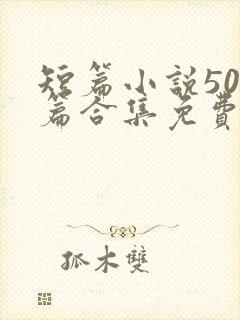 短篇小說50
篇合集免費
孤木雙